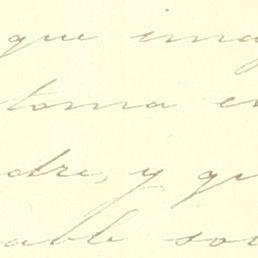 que imag
toma en
dre, y qu
able son